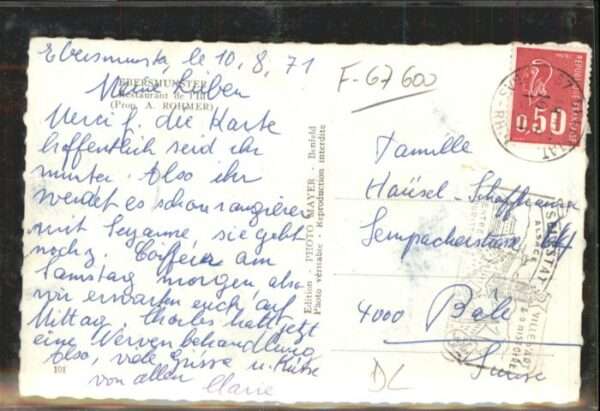 Ebersmunster, le 10.8.71
Meine Lieben
EBERSMUNSTER
Restaurant de l'Ill
(Prop. A. ROHMER)
Merci f. die Karte
hoffentlich seid ihr
munter. Also ihr
werdet es schon
mit Suzanne, sie geht
noch z. Coiffeur am
Samstag morgen also
wir erwarten euch auf
Mittag. Charles hat jetzt
eine Nervenbehandlung
Also, viele Grüsse u. Küsse
von allen Marie
101
Edition - PHOTO MAYER - Benfeld
Photo véritable - Reproduction interdite
F-67600
REPUBLIQUE FRANÇAISE
0,50
Familie
Haüsel-Schaffhauser
Sempacherstrasse
4000 Bâle
Suisse
DL
SELESTAT
ALSACE
VILLE D'ART